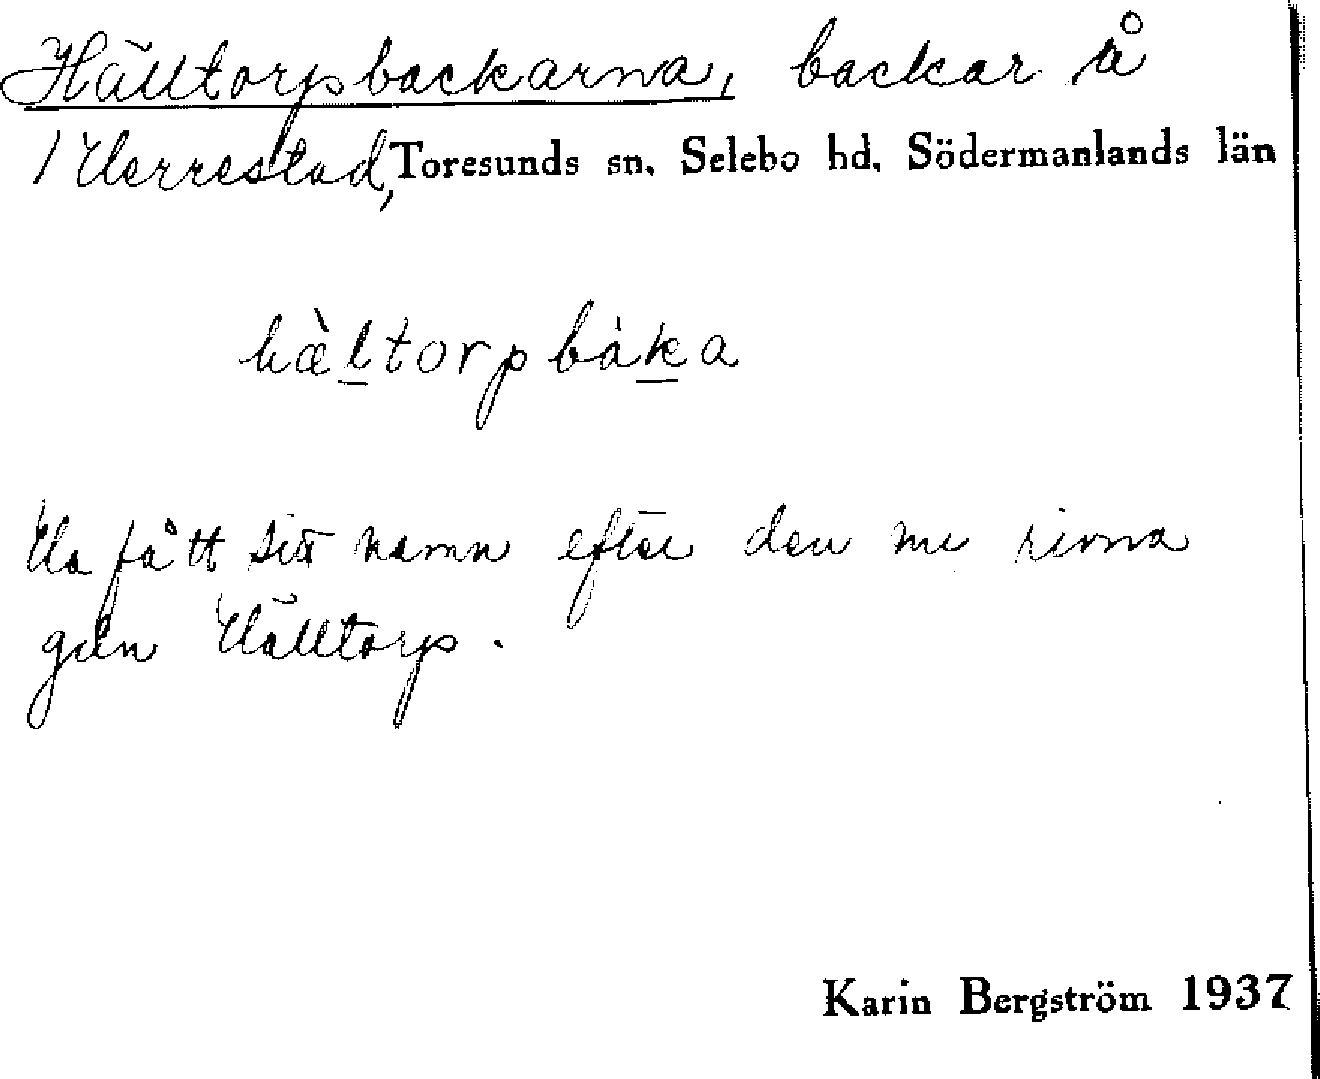 Hälltorpsbackarna, backar å
1 Herrestad, Toresunds sn, Selebo hd, Södermanlands län
hæ̀ltorpbàka
Ha fått sitt namn efter den nu rivna
gdn Hälltorp.
Karin Bergström 1937